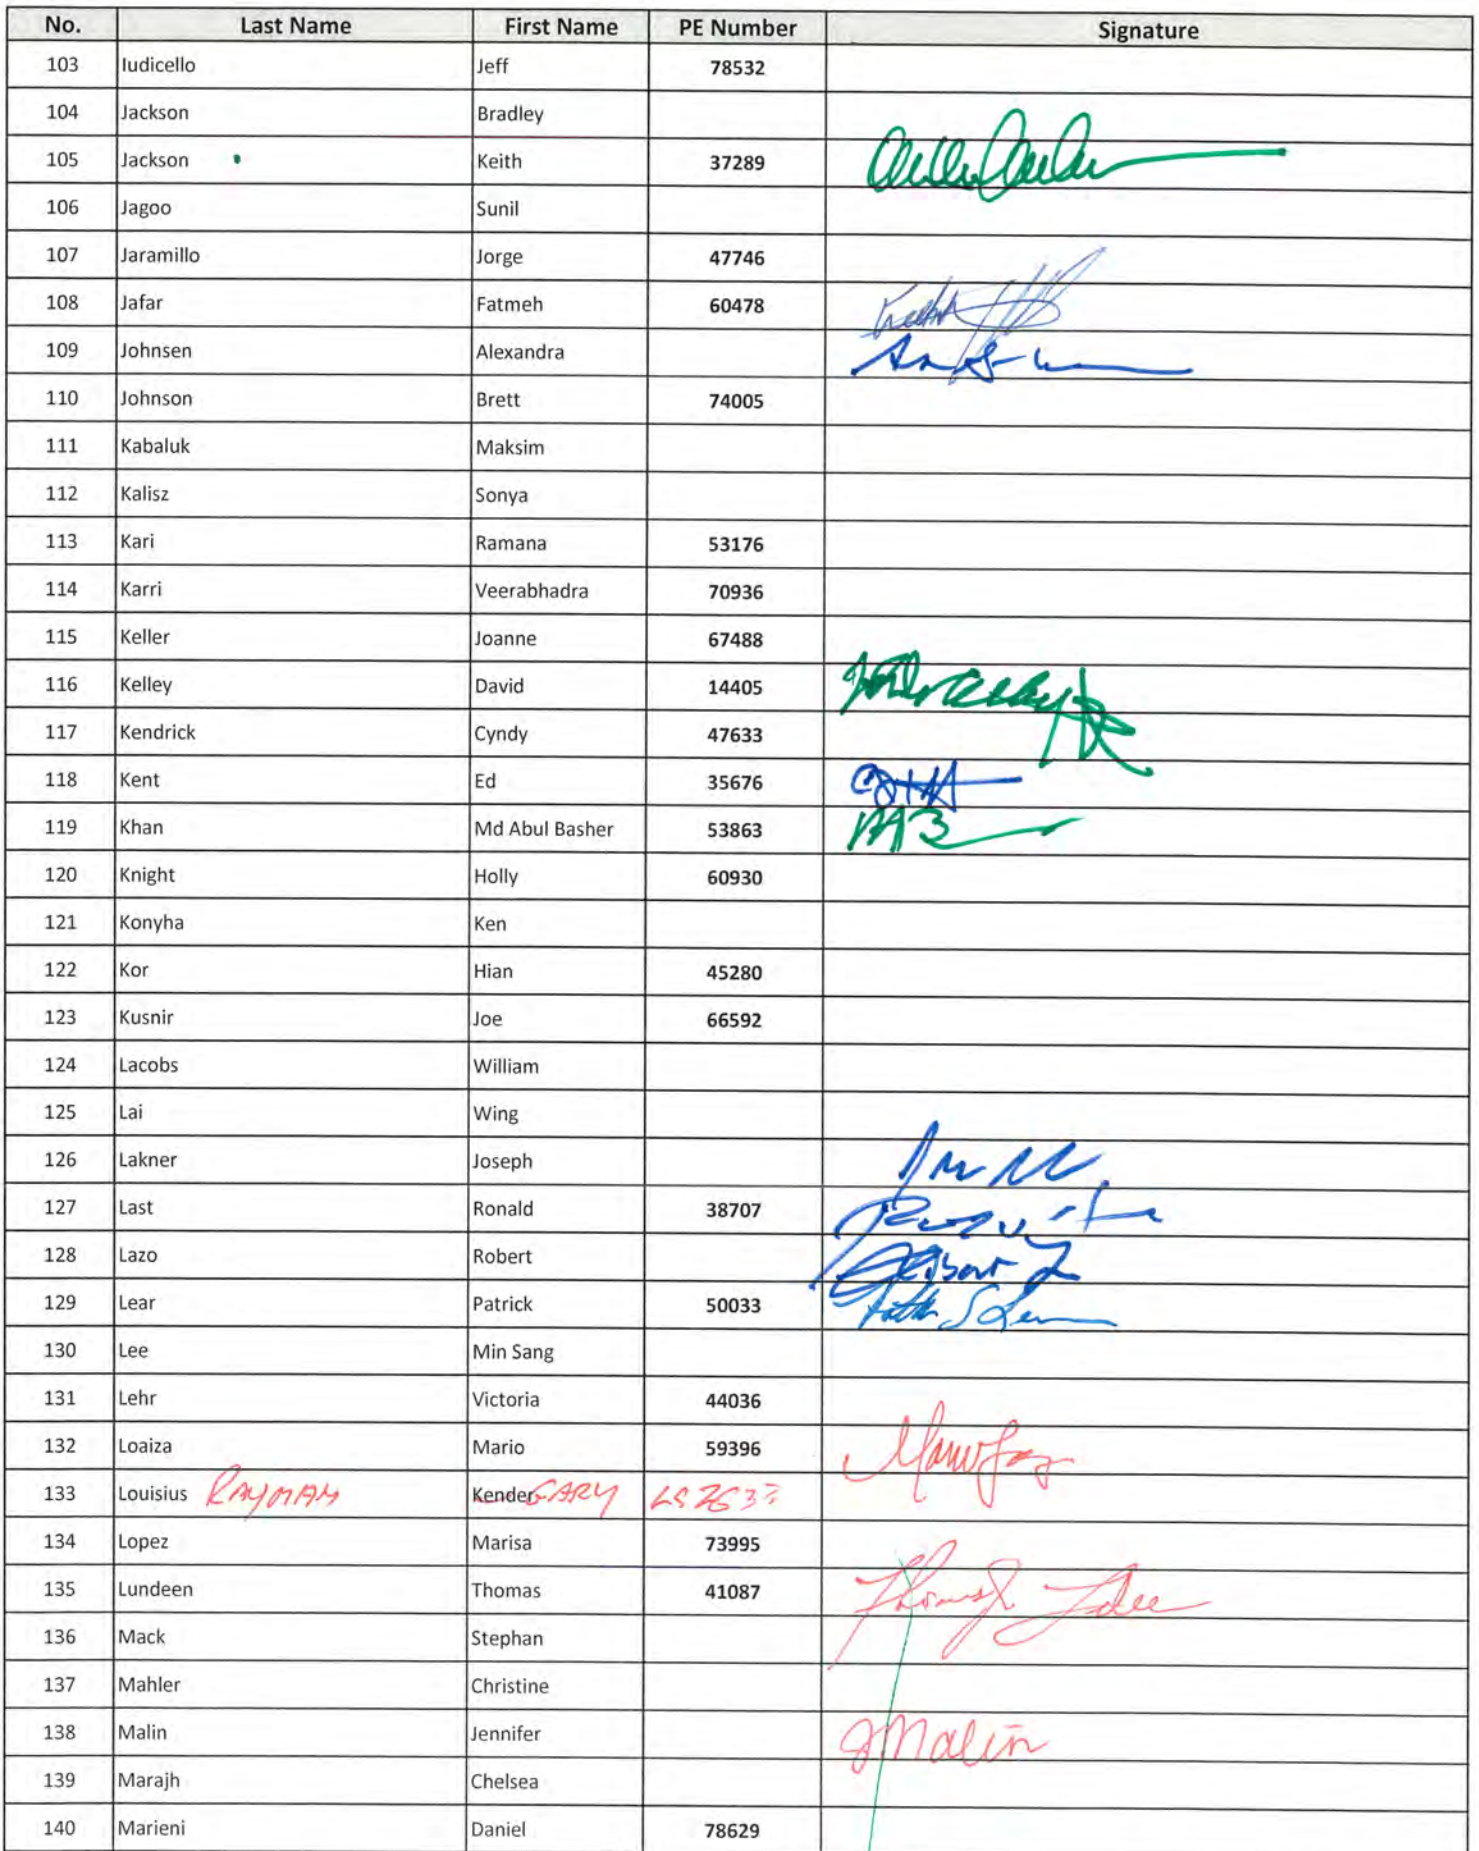 No. Last Name First Name PE Number Signature
103 Iudicello Jeff 78532
104 Jackson Bradley
105 Jackson Keith 37289
106 Jagoo Sunil
107 Jaramillo Jorge 47746
108 Jafar Fatmeh 60478
109 Johnsen Alexandra
110 Johnson Brett 74005
111 Kabaluk Maksim
112 Kalisz Sonya
113 Kari Ramana 53176
114 Karri Veerabhadra 70936
115 Keller Joanne 67488
116 Kelley David 14405
117 Kendrick Cyndy 47633
118 Kent Ed 35676
119 Khan Md Abul Basher 53863
120 Knight Holly 60930
121 Konyha Ken
122 Kor Hian 45280
123 Kusnir Joe 66592
124 Lacobs William
125 Lai Wing
126 Lakner Joseph
127 Last Ronald 38707
128 Lazo Robert
129 Lear Patrick 50033
130 Lee Min Sang
131 Lehr Victoria 44036
132 Loaiza Mario 59396
133 Louisius RAYMAM Kender GARY
134 Lopez Marisa 73995
135 Lundeen Thomas 41087
136 Mack Stephan
137 Mahler Christine
138 Malin Jennifer JMalin
139 Marajh Chelsea
140 Marieni Daniel 78629